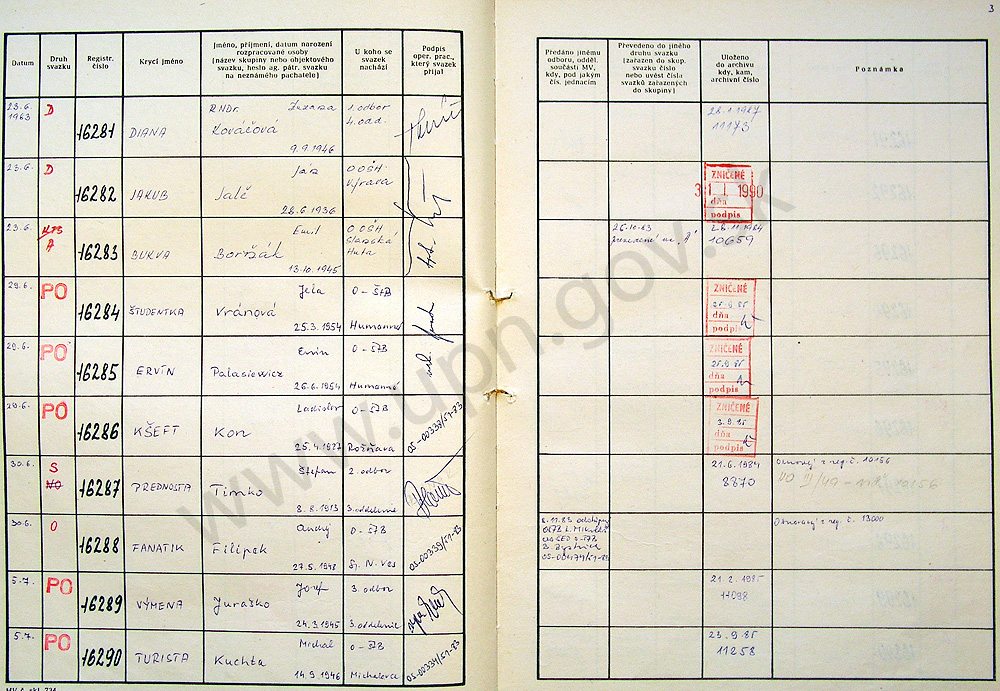 3
Datum
Druh svazku
Registr. číslo
Krycí jméno
Jméno, příjmení, datum narození
rozpracované osoby
(název skupiny nebo objektového
svazku, heslo ag. pátr. svazku
na neznámého pachatele)
U koho se
svazek
nachází
Podpis
oper. prac.,
který svazek
přijal
Předáno jinému
odboru, odděl.
součásti MV,
kdy, pod jakým
čís. jednacím
Převedeno do jiného
druhu svazku
(zařazen do skup.
svazku číslo
nebo uvést čísla
svazků zařazených
do skupiny)
Uloženo
do archivu
kdy, kam,
archivní číslo
Poznámka
23.6. 1963 D 16281 DIANA RNDr. Zuzana Kováčová 9.9.1946 1. odbor 4. odd. 28.1.1987 11173
23.6. D 16282 JAKUB Ján Jalč 28.6.1936 OOŠH Výrava ZNIČENÉ 31 I. 1990 dňa podpis
23.6. A 16283 BUKVA Emil Boržák 13.10.1945 OOŠH Slanská Huta 26.10.83 "A" 28.11.1984 10659
29.6. PO 16284 ŠTUDENTKA Vránová 25.3.1954 O-ŠtB Humenné ZNIČENÉ dňa podpis
29.6. PO 16285 ERVÍN Ervin Palasiewicz 26.6.1954 O-ŠTB Humenné ZNIČENÉ dňa podpis
29.6. PO 16286 KŠEFT Ladislav Kon 25.4.1927 O-ŠTB Rožňava OS-00338/51-83 ZNIČENÉ 3.9.85 dňa podpis
30.6. S NO 16287 PREDNOSTA Štefan Timko 8.8.1913 2. odbor 3. oddelenie 21.6.1984 8870 Obnovený z reg. č. 10156
30.6. O 16288 FANATIK Ondrej Filipek 27.5.1948 O-ŠTB Sp. N. Ves OS-00339/51-83 Obnovený z reg. č. 13000
5.7. PO 16289 VÝMENA Jozef Juraško 24.3.1945 3. odbor 3. oddelenie 21.2.1985 11098
5.7. PO 16290 TURISTA Michal Kuchta 14.9.1946 O-ŠTB Michalovce OS-00334/51-83 23.9.85 11258
www.upn.gov.sk